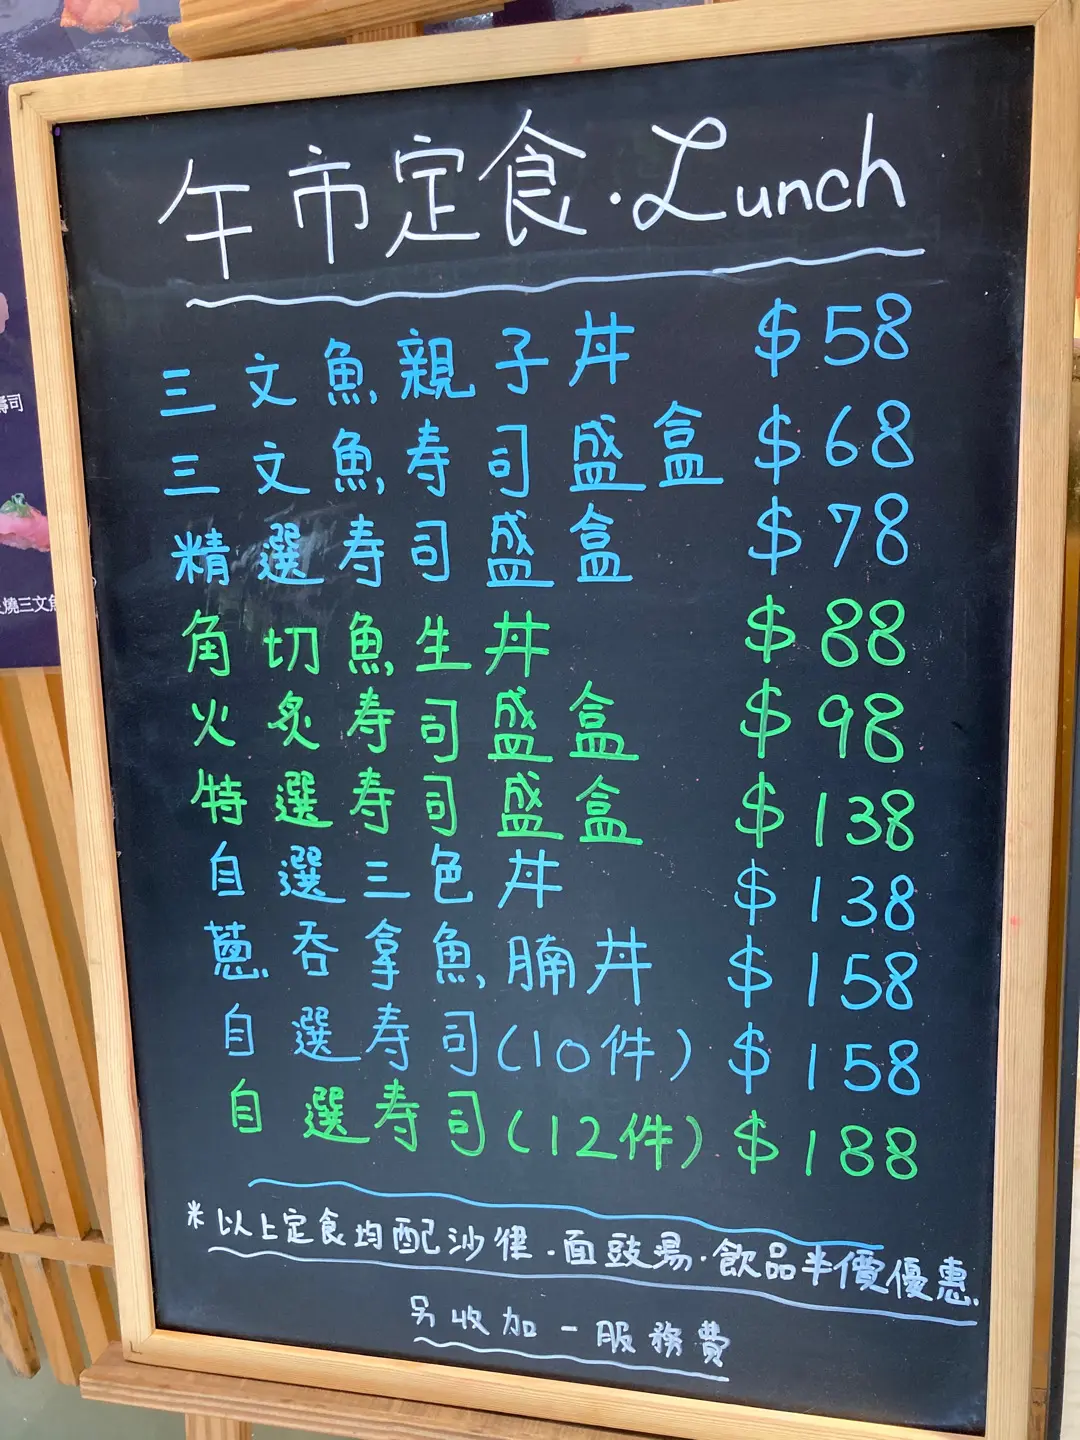 午市定食·Lunch
三文魚親子丼 $58
三文魚寿司盛盒 $68
精選寿司盛盒 $78
角切魚生丼 $88
火炙寿司盛盒 $98
特選寿司盛盒 $138
自選三色丼 $138
蔥吞拿魚腩丼 $158
自選寿司(10件) $158
自選寿司(12件) $188
*以上定食均配沙律.面豉湯.飲品半價優惠.
另收加一服務費
壽司
燒三文魚